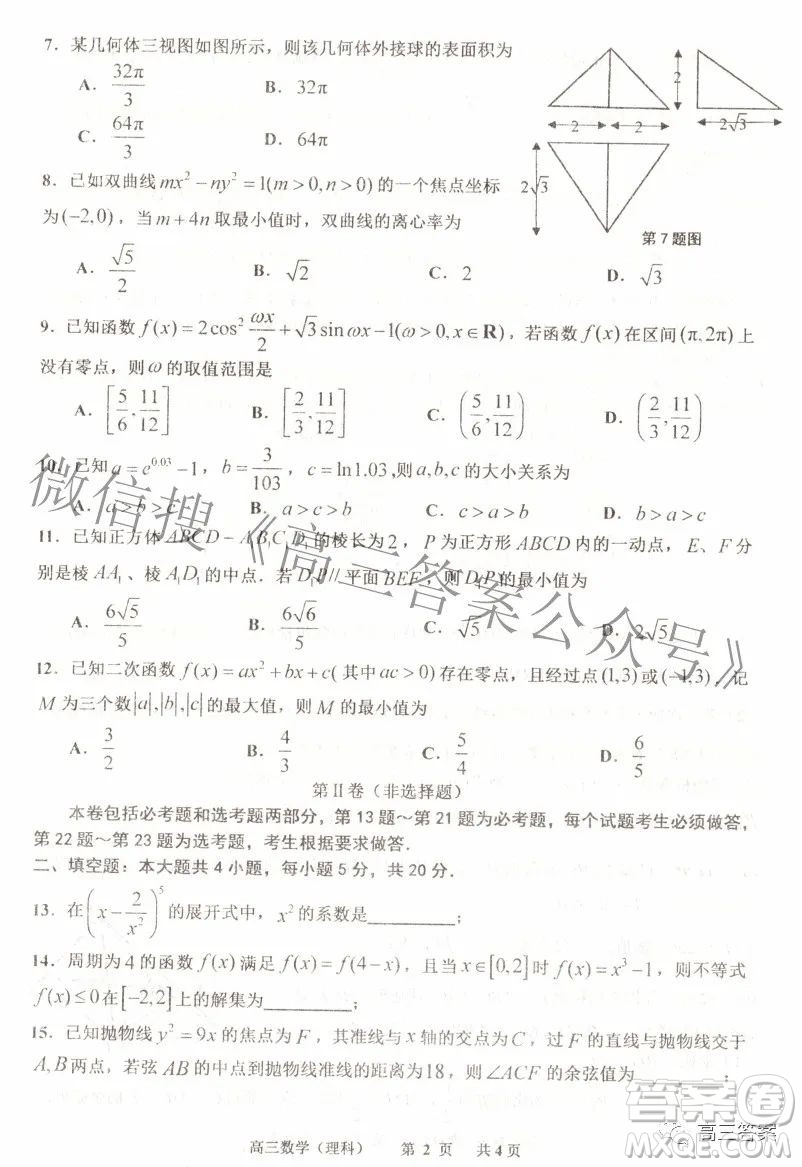 7．某几何体三视图如图所示，则该几何体外接球的表面积为
A．32π/3 B．32π
C．64π/3 D．64π
2
2 2 2√3
2√3
第7题图
8．已如双曲线mx²−ny²=1(m>0,n>0)的一个焦点坐标
为(−2,0)，当m+4n取最小值时，双曲线的离心率为
A．√5/2 B．√2 C．2 D．√3
9．已知函数f(x)=2cos²(ωx/2)+√3sinωx−1(ω>0,x∈R)，若函数f(x)在区间(π,2π)上
没有零点，则ω的取值范围是
A．[5/6,11/12] B．[2/3,11/12] C．(5/6,11/12) D．(2/3,11/12)
10．已知a=e^0.03−1，b=3/103，c=ln1.03,则a,b,c的大小关系为
A．a>b>c B．a>c>b C．c>a>b D．b>a>c
11．已知正方体ABCD−A₁B₁C₁D₁的棱长为2，P为正方形ABCD内的一动点，E、F分
别是棱AA₁、棱A₁D₁的中点．若D₁P//平面BEF，则D₁P的最小值为
A．6√5/5 B．6√6/5 C．√5 D．2√5
12．已知二次函数f(x)=ax²+bx+c(其中ac>0)存在零点，且经过点(1,3)或(−1,3)，记
M为三个数|a|,|b|,|c|的最大值，则M的最小值为
A．3/2 B．4/3 C．5/4 D．6/5
第Ⅱ卷（非选择题）
本卷包括必考题和选考题两部分，第13题～第21题为必考题，每个试题考生必须做答，
第22题～第23题为选考题，考生根据要求做答．
二、填空题：本大题共4小题，每小题5分，共20分．
13．在(x−2/x²)⁵的展开式中，x²的系数是________；
14．周期为4的函数f(x)满足f(x)=f(4−x)，且当x∈[0,2]时f(x)=x³−1，则不等式
f(x)≤0在[−2,2]上的解集为________；
15．已知抛物线y²=9x的焦点为F，其准线与x轴的交点为C，过F的直线与抛物线交于
A,B两点，若弦AB的中点到抛物线准线的距离为18，则∠ACF的余弦值为________；
高三数学（理科） 第 2 页 共4页
微信搜《高三答案公众号》
答案圈
高三答案
MXQE.COM